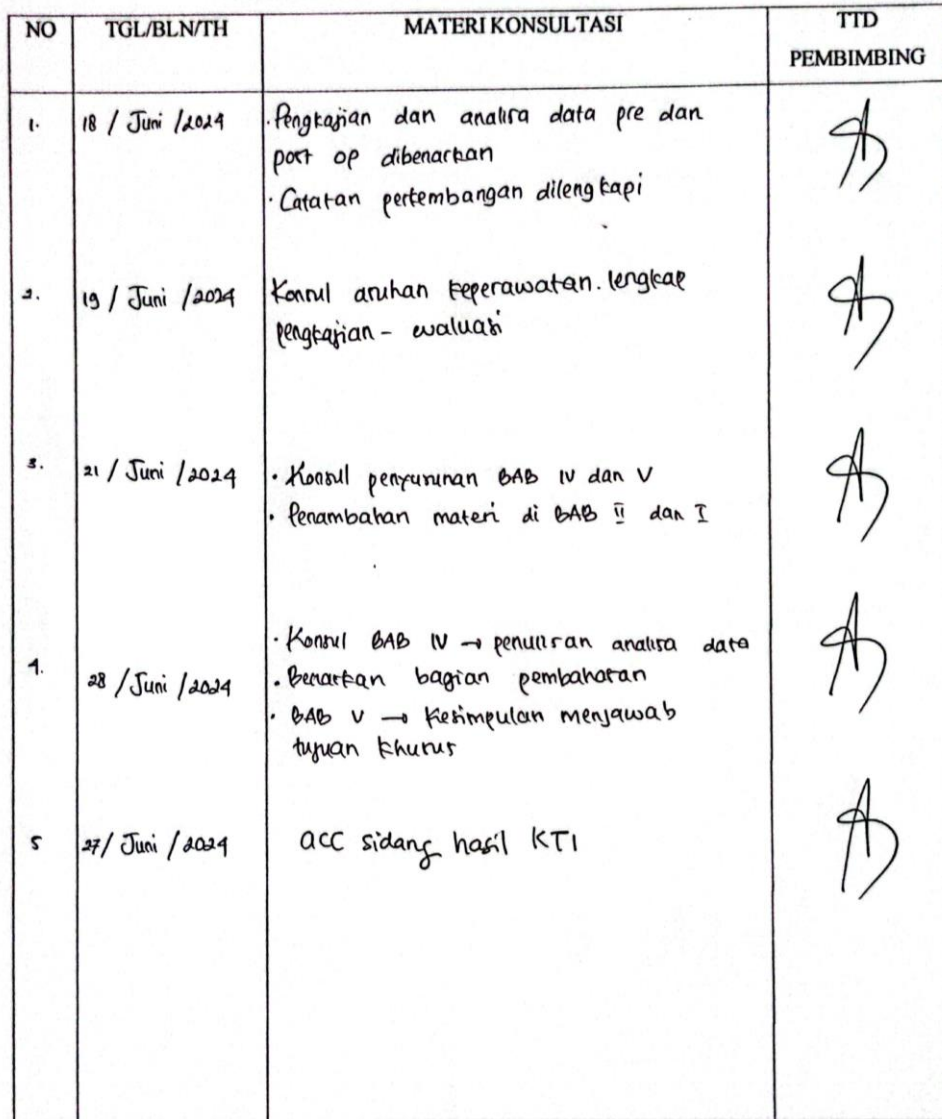 NO TGL/BLN/TH MATERI KONSULTASI TTD
PEMBIMBING
1. 18 / Juni / 2024 · Pengkajian dan analisa data pre dan
post op dibenarkan
· Catatan perkembangan dilengkapi
2. 19 / Juni / 2024 Konsul asuhan keperawatan. lengkap
pengkajian - evaluasi
3. 21 / Juni / 2024 · Konsul penyusunan BAB IV dan V
· Penambahan materi di BAB II dan I
4. 28 / Juni / 2024 · Konsul BAB IV → penulisan analisa data
· Benarkan bagian pembahasan
· BAB V → Kesimpulan menjawab
tujuan khusus
5 27 / Juni / 2024 acc sidang hasil KTI